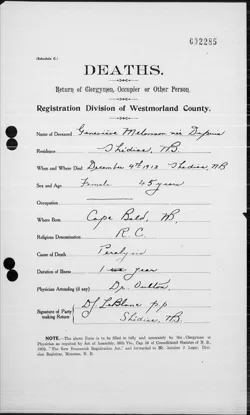 (Schedule C.)
002285
DEATHS.
Return of Clergymen, Occupier or Other Person.
Registration Division of Westmorland County.
Name of Deceased Genevieve Melanson née Dupuis
Residence Shediac, NB
When and Where Died December 4th 1913 Shediac, NB
Sex and Age Female 45 years
Occupation
Where Born Cape Bald, NB.
Religious Denomination R C.
Cause of Death Paralysis
Duration of Illness 1 year
Physician Attending (if any) Dr. Oulton.
Signature of Party making Return DJ LeBlanc pp
Shediac, NB.
NOTE.—The above Form is to be filled in fully and accurately by the Clergyman or
Physician as required by Act of Assembly, Cap. of Consolidated Statutes of N. B.,
1903, "The New Brunswick Registration Act," and forwarded to
Registrar, Moncton, N. B.